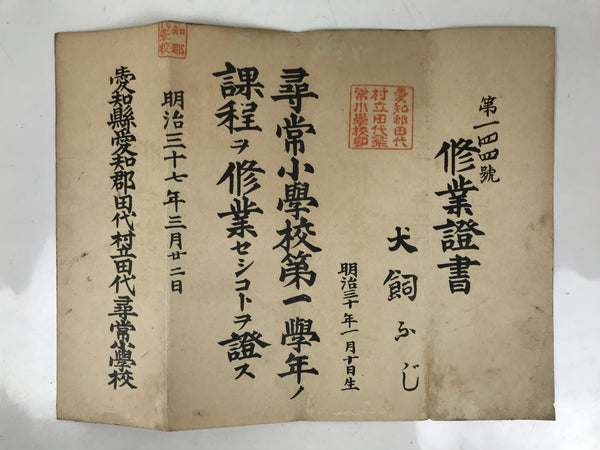 第一四四號
修業證書
犬飼ふじ
明治三十年一月十日生
尋常小學校第一學年ノ
課程ヲ修業セシコトヲ證ス
明治三十七年三月廿二日
愛知縣愛知郡田代村立田代尋常小學校
愛知郡田代
村立田代尋
常小學校印
知郡
代尋校